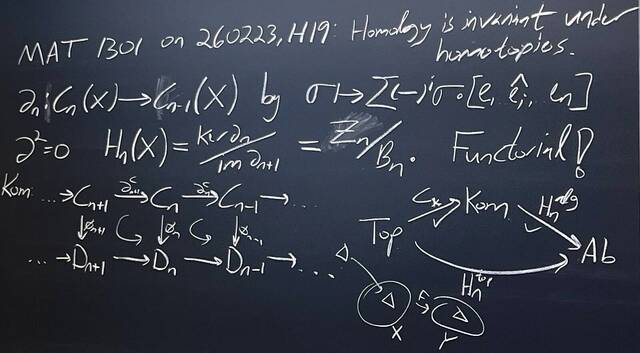 MAT 1301 on 260223, H19: Homology is invariant under homotopies.
∂n: Cn(X) → Cn-1(X) by σ ↦ Σ(-)^i σ∘[e, ê_i, en]
∂²=0 Hn(X) = ker ∂n / im ∂n+1 = Zn/Bn. Functorial!
Kom: ... → Cn+1 →∂^C_n+1 Cn →∂^C_n Cn-1 → ...
↓φn+1 ↓φn ↓φn-1
... → Dn+1 → Dn → Dn-1 → ...
Top C* Kom Hn^alg Ab
Hn^top
Δ Δ F Δ
X Y